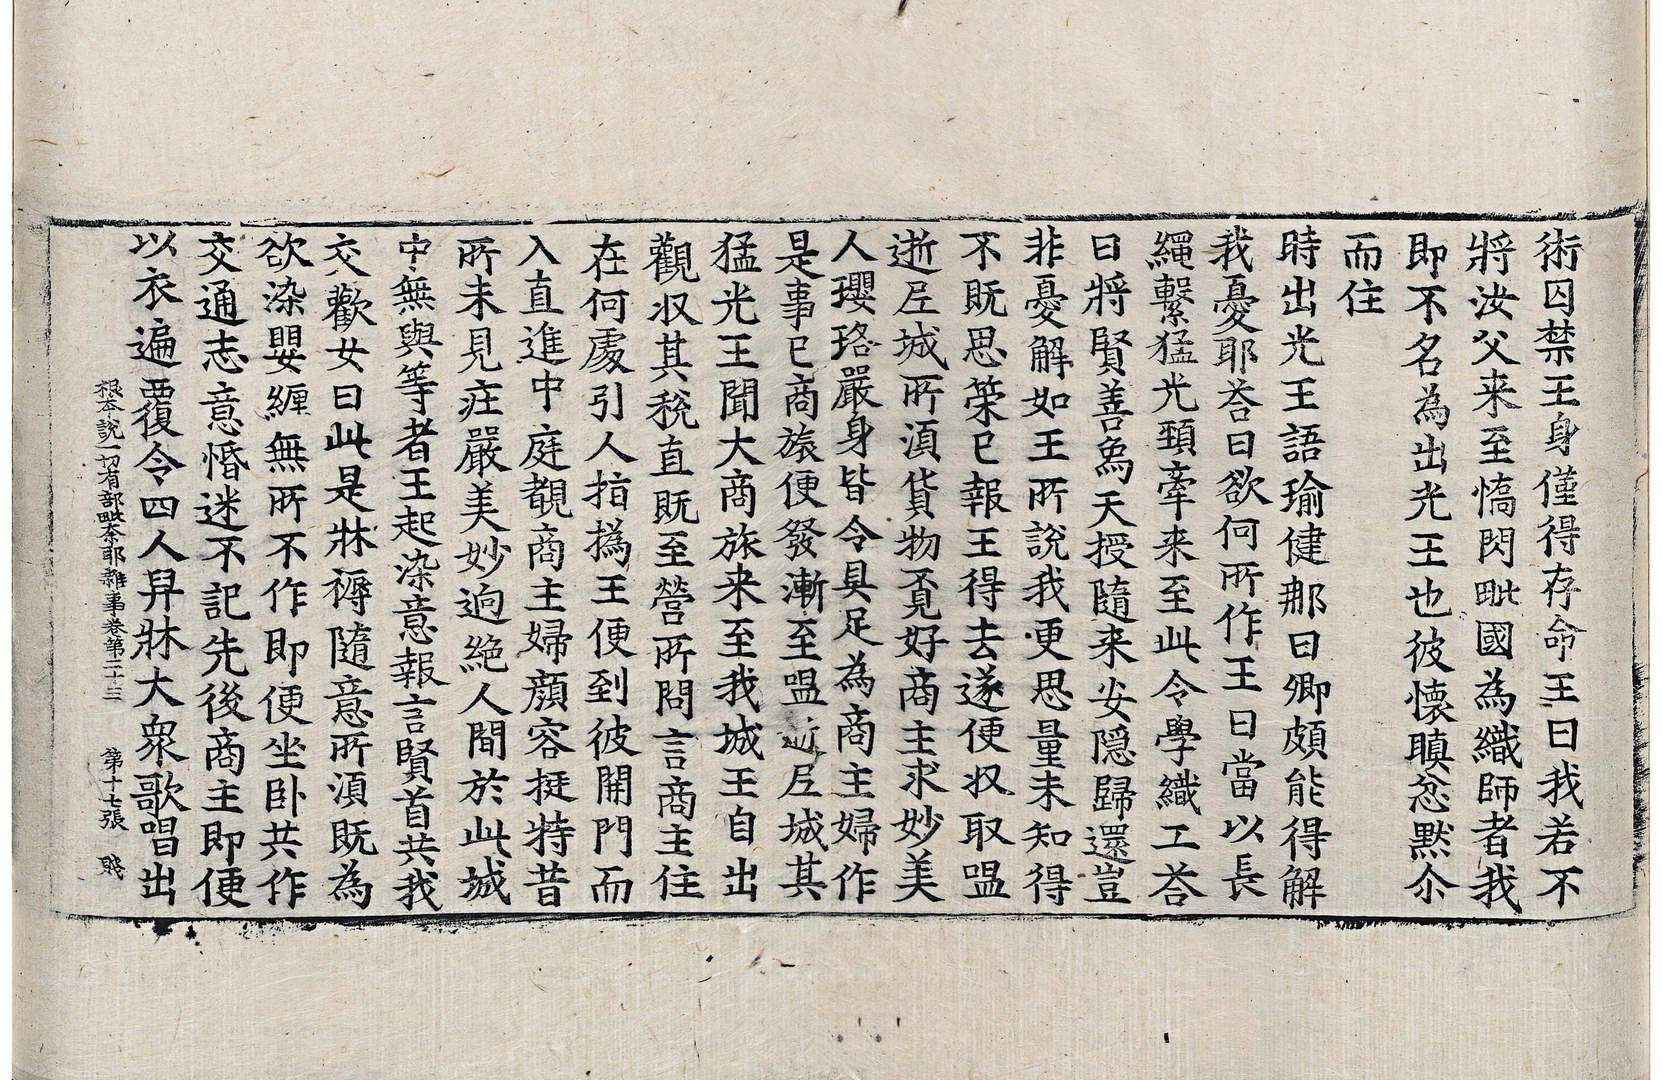 術囚禁王身僅得存命王曰我若不
將汝父来至憍閃毗國為織師者我
即不名為出光王也彼懷瞋忿默尒
而住
時出光王語瑜健那曰卿頗能得解
我憂耶荅曰欲何所作王曰當以長
繩繫猛光頸牽来至此令學織工荅
曰將賢善爲天授隨来安隱歸還豈
非憂解如王所說我更思量未知得
不既思策已報王得去遂便収取嗢
逝尼城所湏貨物覓好商主求妙美
人瓔珞嚴身皆令具足為商主婦作
是事已商旅便發漸至嗢逝尼城其
猛光王聞大商旅来至我城王自出
觀収其稅直既至營所問言商主住
在何處引人指撝王便到彼開門而
入直進中庭覩商主婦顏容挺特昔
所未見庄嚴美妙逈絶人間於此城
中無與等者王起染意報言賢首共我
交歡女曰此是牀褥隨意所湏既為
欲染嬰纏無所不作即便坐卧共作
交通志意惛迷不記先後商主即便
以衣遍覆令四人舁牀大衆歌唱出
根本說一切有部毗奈耶雜事卷第二十三 第十七張